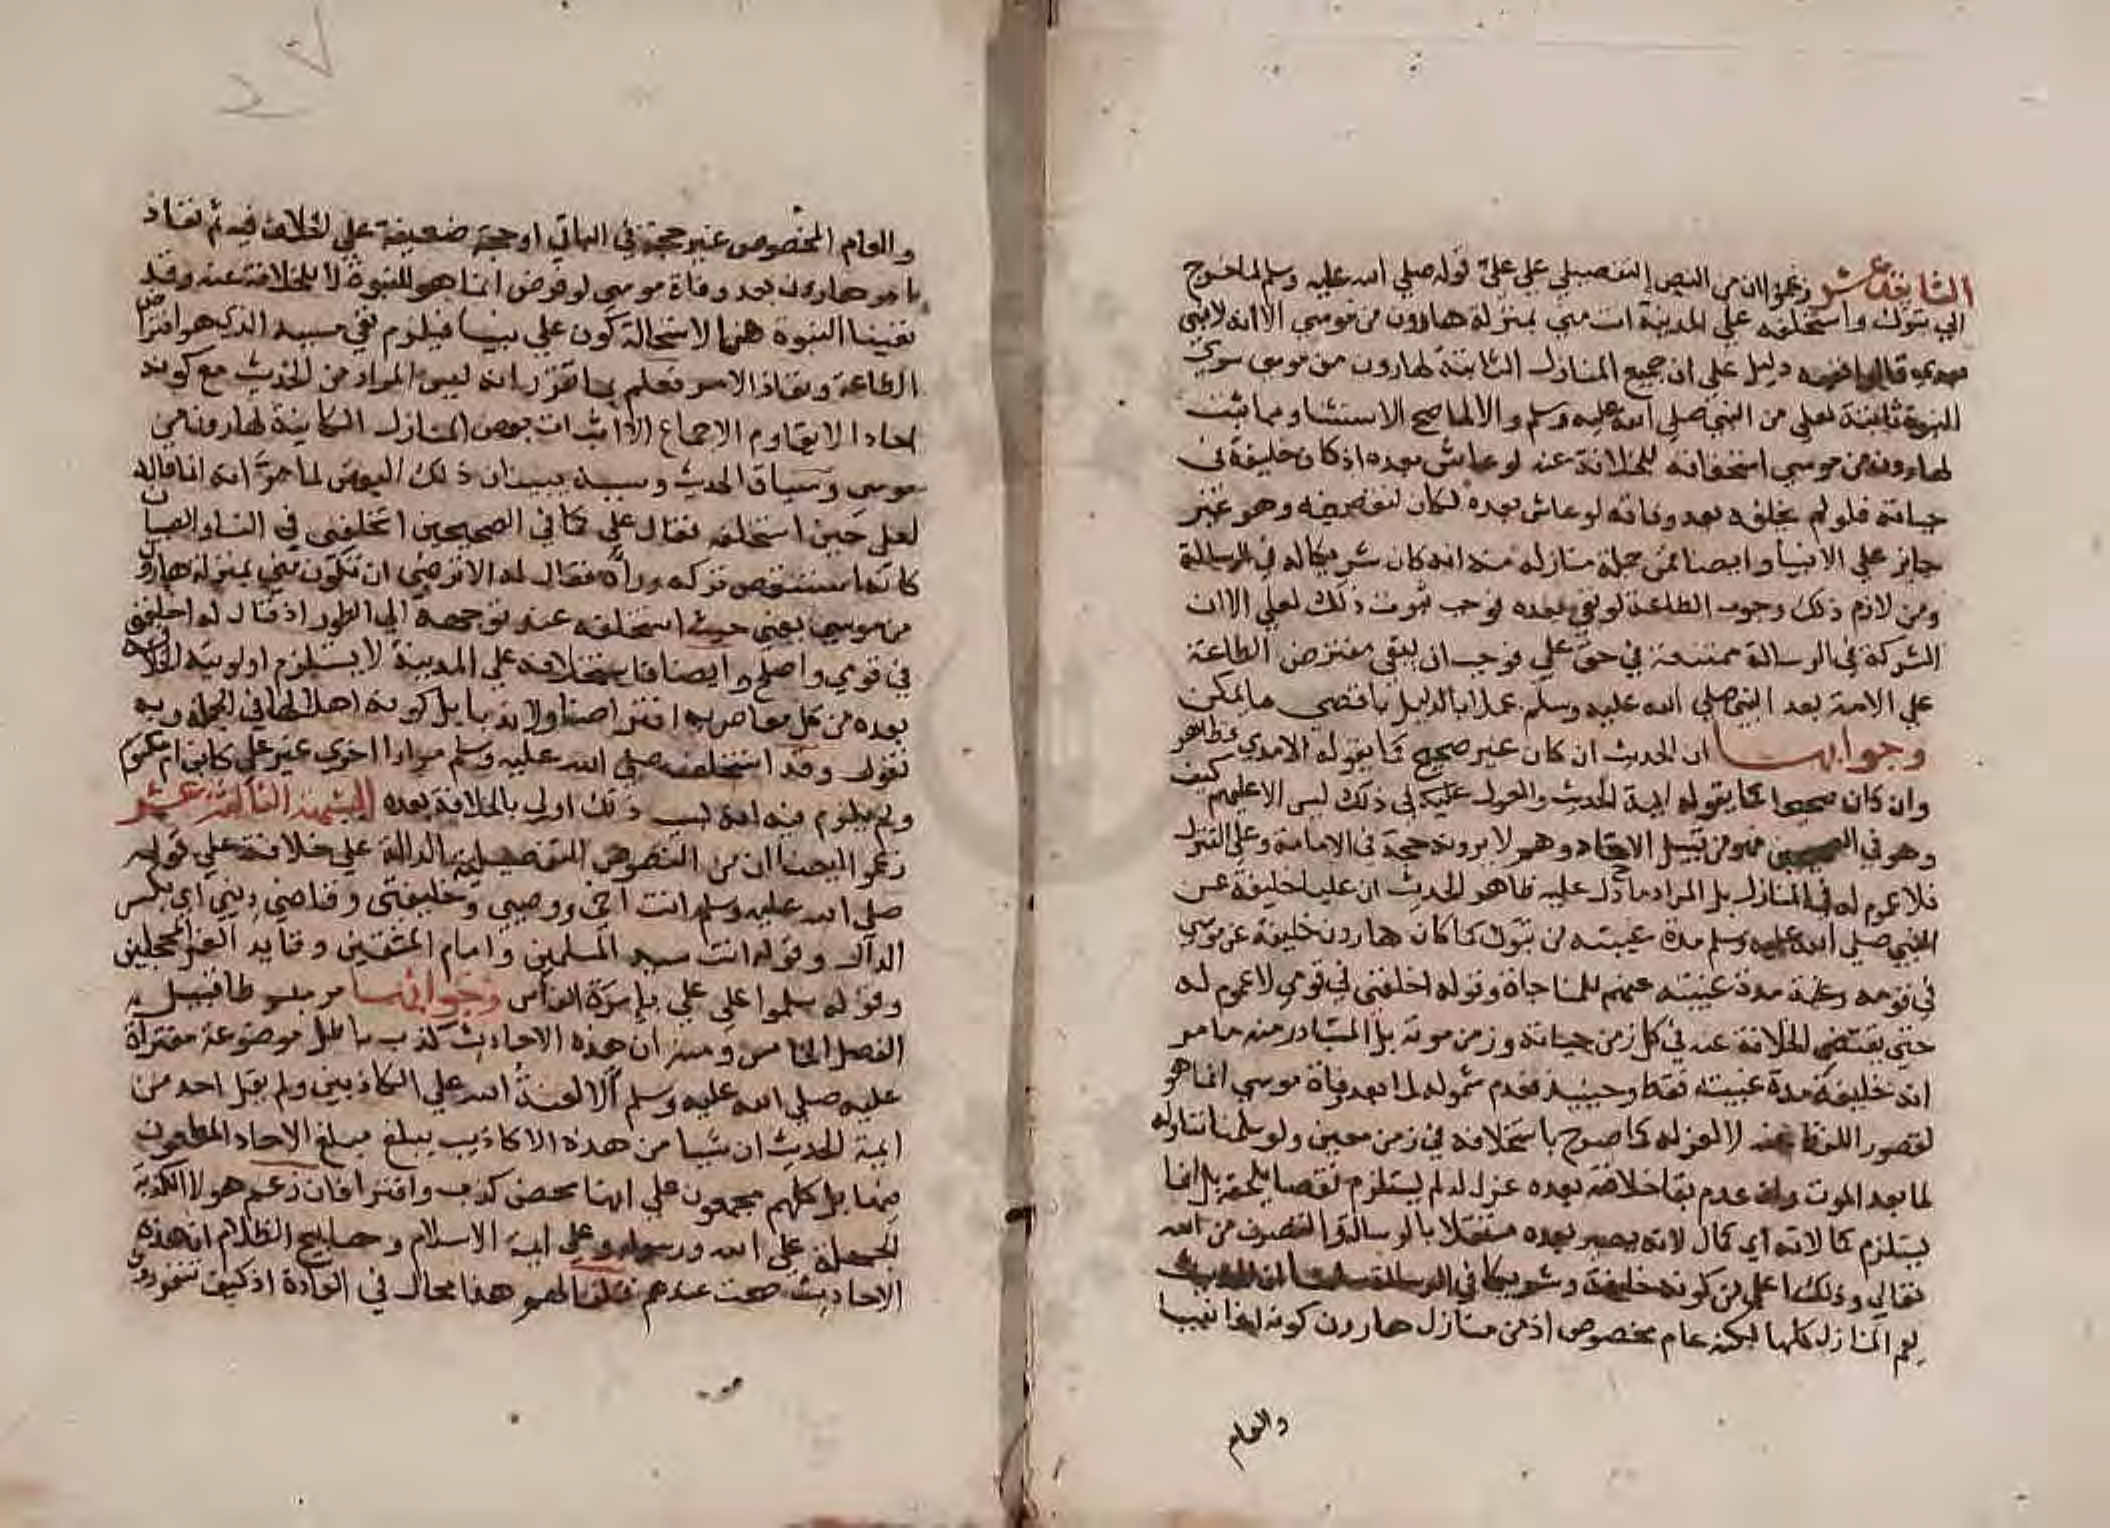 الثانية عشر زعموا ان من النص التفصيلي على علي قوله صلي الله عليه وسلم لما خرج
الي تبوك واستخلفه علي المدينة انت مني بمنزلة هارون من موسي الا انه لا نبي
بعدي قالوا ففيه دليل علي ان جميع المنازل الثابتة لهارون من موسي سوي
النبوة ثابتة لعلي من النبي صلي الله عليه وسلم والا لما صح الاستثنا ومما ثبت
لهارون من موسي استحقاقه للخلافة عنه لو عاش بعده اذ كان خليفة في
حياته فلو لم يخلفه بعد وفاته لو عاش بعده لكان لنقص فيه وهو غير
جايز علي الانبيا وايضا فمن جملة منازله منه انه كان شريكا له في الرسالة
ومن لازم ذلك وجوب الطاعة لو بقي بعده فوجب ثبوت ذلك لعلي الا ان
الشركة في الرسالة ممتنعة في حق علي فوجب ان يبقي مفترض الطاعة
علي الامة بعد النبي صلي الله عليه وسلم عملا بالدليل باقصي ما يمكن
وجوابها ان الحديث ان كان غير صحيح كما يقوله الامدي فظاهر
وان كان صحيحا كما يقوله ايمة الحديث والمعول عليه في ذلك ليس الا عليهم كيف
وهو في الصحيحين فهو من قبيل الاحاد وهم لا يرونه حجة في الامامة وعلي التنزل
فلا عموم له في المنازل بل المراد ما دل عليه ظاهر الحديث ان عليا خليفة عن
النبي صلي الله عليه وسلم مدة غيبته من تبوك كما كان هارون خليفة عن موسي
في قومه مدة غيبته عنهم للمناجاة وقوله اخلفني في قومي لا عموم له
حتي يقتضي الخلافة عنه في كل زمن حياته وزمن موته بل المتبادر منه ما مر
انه خليفة مدة غيبته فقط وحينيذ فعدم شموله لما بعد وفاة موسي انما هو
لقصور اللفظ عنه لا لعزله كما لو صرح باستخلافه في زمن معين ولو سلمنا تناوله
لما بعد الموت وان عدم بقا خلافته بعده عزل له لم يستلزم نقصا يلحقه بل انما
يستلزم كمالا له اي كمال لانه يصير بعده مستقلا بالرسالة والتصرف من الله
تعالي وذلك اعلي من كونه خليفة وشريكا في الرسالة سلمنا ان الحديث
يعم المنازل كلها لكنه عام مخصوص اذ من منازل هارون كونه اخا نبيا
والعام
والعام المخصوص غير حجة في الباقي او حجة ضعيفة علي الخلاف فيه ثم نفاذ
امر هارون بعد وفاة موسي لو فرض انما هو للنبوة لا للخلافة عنه وقد
نفينا النبوة هنا لاستحالة كون علي نبيا فيلزم نفي مسببه الذي هو افتراض
الطاعة ونفاذ الامر فعلم بما تقرر انه ليس المراد من الحديث مع كونه
احادا لا يقاوم الاجماع الا اثبات بعض المنازل الكاينة لهارون من
موسي وسياق الحديث وسببه يبينان ذلك البعض لما مر انه انما قاله
لعلي حين استخلفه فقال علي كما في الصحيحين اتخلفني في النسا والصبيان
كانه استنقص تركه وراه فقال له الا ترضي ان تكون مني بمنزلة هارون
من موسي يعني حيث استخلفه عند توجهه الي الطور اذ قال له اخلفني
في قومي واصلح وايضا فاستخلافه علي المدينة لا يستلزم اولويته للخلافة
بعده من كل معاصريه افتراضا ولا ندبا بل كونه اهلا لها في الجملة وبه
نقول وقد استخلف صلي الله عليه وسلم مرارا اخري غير علي كابن ام مكتوم
ولم يلزم فيه انه بسبب ذلك اولي بالخلافة بعده الشبهة الثالثة عشر
زعموا ايضا ان من النصوص التفصيلية الدالة علي خلافة علي قوله
صلي الله عليه وسلم انت اخي ووصيي وخليفتي وقاضي ديني اي بكسر
الدال وقوله انت سيد المسلمين وامام المتقين وقايد الغر المحجلين
وقوله سلموا علي علي بامرة الناس وجوابها مر مبسوطا قبيل
الفصل الخامس ومنه ان هذه الاحاديث كذب باطل موضوعة مفتراة
عليه صلي الله عليه وسلم الا لعنة الله علي الكاذبين ولم يقل احد من
ايمة الحديث ان شيا من هذه الاكاذيب يبلغ مبلغ الاحاد المطعون
فيها بل كلهم مجمعون علي انها محض كذب وافترا فان زعم هولا الكذبة
الجهلة علي الله ورسوله وعلي ايمة الاسلام ومصابيح الظلام ان هذه
الاحاديث صحت عندهم قلنا لهم هذا محال في العادة اذ كيف تتفردون